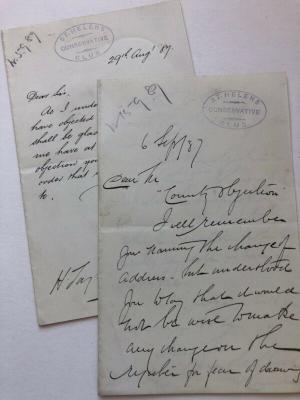 ST HELENS
CONSERVATIVE
CLUB
29th Augt 87.
Dear Sir,
As I under
have objected
shall be glad
me have at
objection you
order that
to.
H Tay
ST HELENS
CONSERVATIVE
CLUB
6 Sep/87
Dear Mr
"County Objection"
I well remember
you naming the change of
address - but understood
you to say that it would
not be wise to make
any change on the
register for fear of drawing